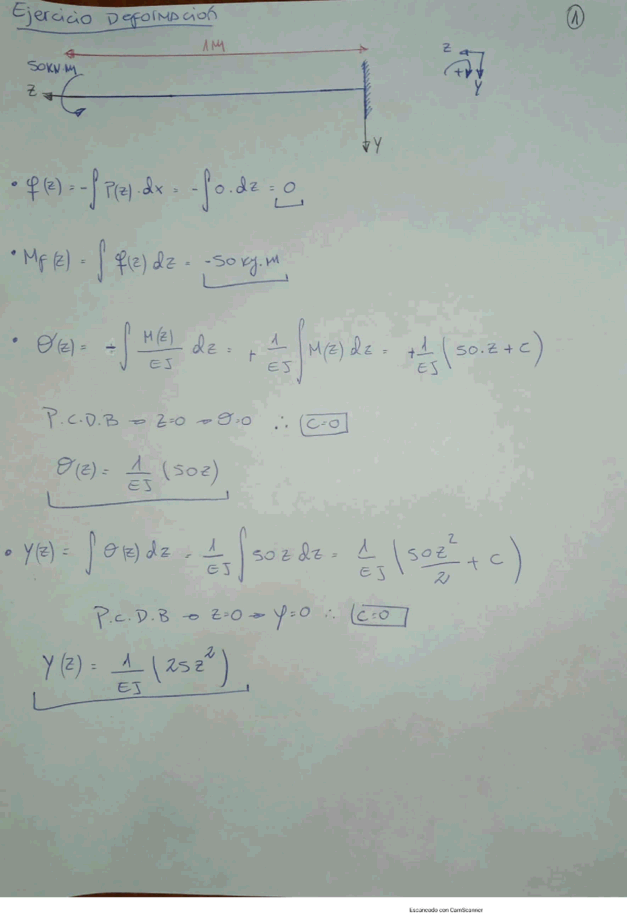 Ejercicio Deformación
1
1M
50KN.M
Z
Z
+
Y
Y
• φ(z) = -∫ P(z).dx = -∫ 0.dz = 0
• Mf(z) = ∫ φ(z) dz = -50 kg.m
• θ(z) = +∫ M(z)/EJ dz = + 1/EJ ∫ M(z) dz = + 1/EJ (50.z + C)
P.C.D.B → z=0 → θ=0 ∴ C=0
θ(z) = 1/EJ (50z)
• Y(z) = ∫ θ(z) dz = 1/EJ ∫ 50 z dz = 1/EJ (50z²/2 + C)
P.C.D.B → z=0 → y=0 ∴ C=0
Y(z) = 1/EJ (25z²)
Escaneado con CamScanner